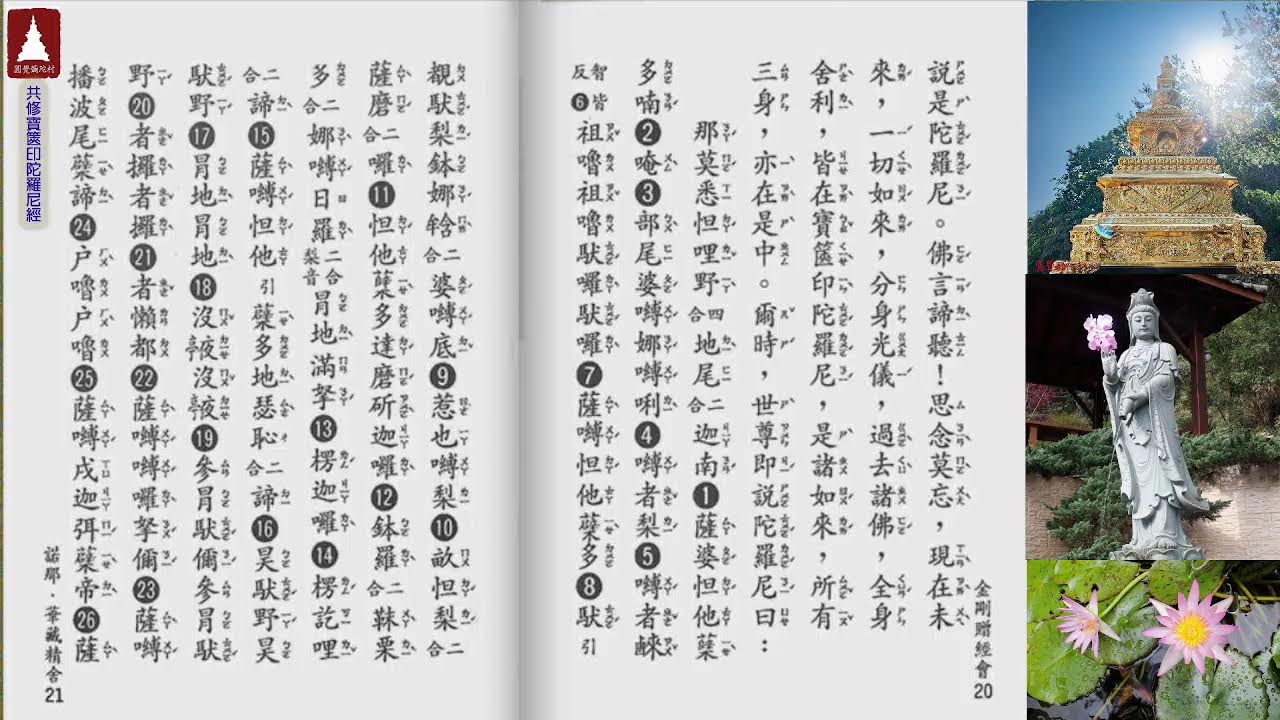 圓覺彌陀村
共修寶篋印陀羅尼經
說是陀羅尼。佛言諦聽！思念莫忘，現在未
來，一切如來，分身光儀，過去諸佛，全身
舍利，皆在寶篋印陀羅尼，是諸如來，所有
三身，亦在是中。爾時，世尊即說陀羅尼曰：
那莫悉怛哩野四合地尾二合迦南❶薩婆怛他蘖
多喃❷唵❸部尾婆嚩娜嚩唎❹嚩者梨❺嚩者㘑
智皆反❻祖嚕祖嚕馱囉馱囉❼薩嚩怛他蘖多❽馱引
金剛贈經會 20
覩馱梨鉢娜𤚥二合婆嚩底❾惹也嚩梨❿畝怛梨二合
薩磨二合囉⓫怛他蘖多達磨斫迦囉⓬鉢羅二合靺栗
多二合娜嚩日羅梨音二合冐地滿拏⓭楞迦囉⓮楞訖哩
二合諦⓯薩嚩怛他引蘖多地瑟恥二合諦⓰冒馱野冒
馱野⓱冐地冐地⓲沒𠆙沒𠆙⓳參冐馱儞參冐馱
野⓴者攞者攞㉑者懶都㉒薩嚩嚩囉拏儞㉓薩嚩
播波尾蘖諦㉔户嚕户嚕㉕薩嚩戍迦弭蘖帝㉖薩
諾那．華藏精舍 21